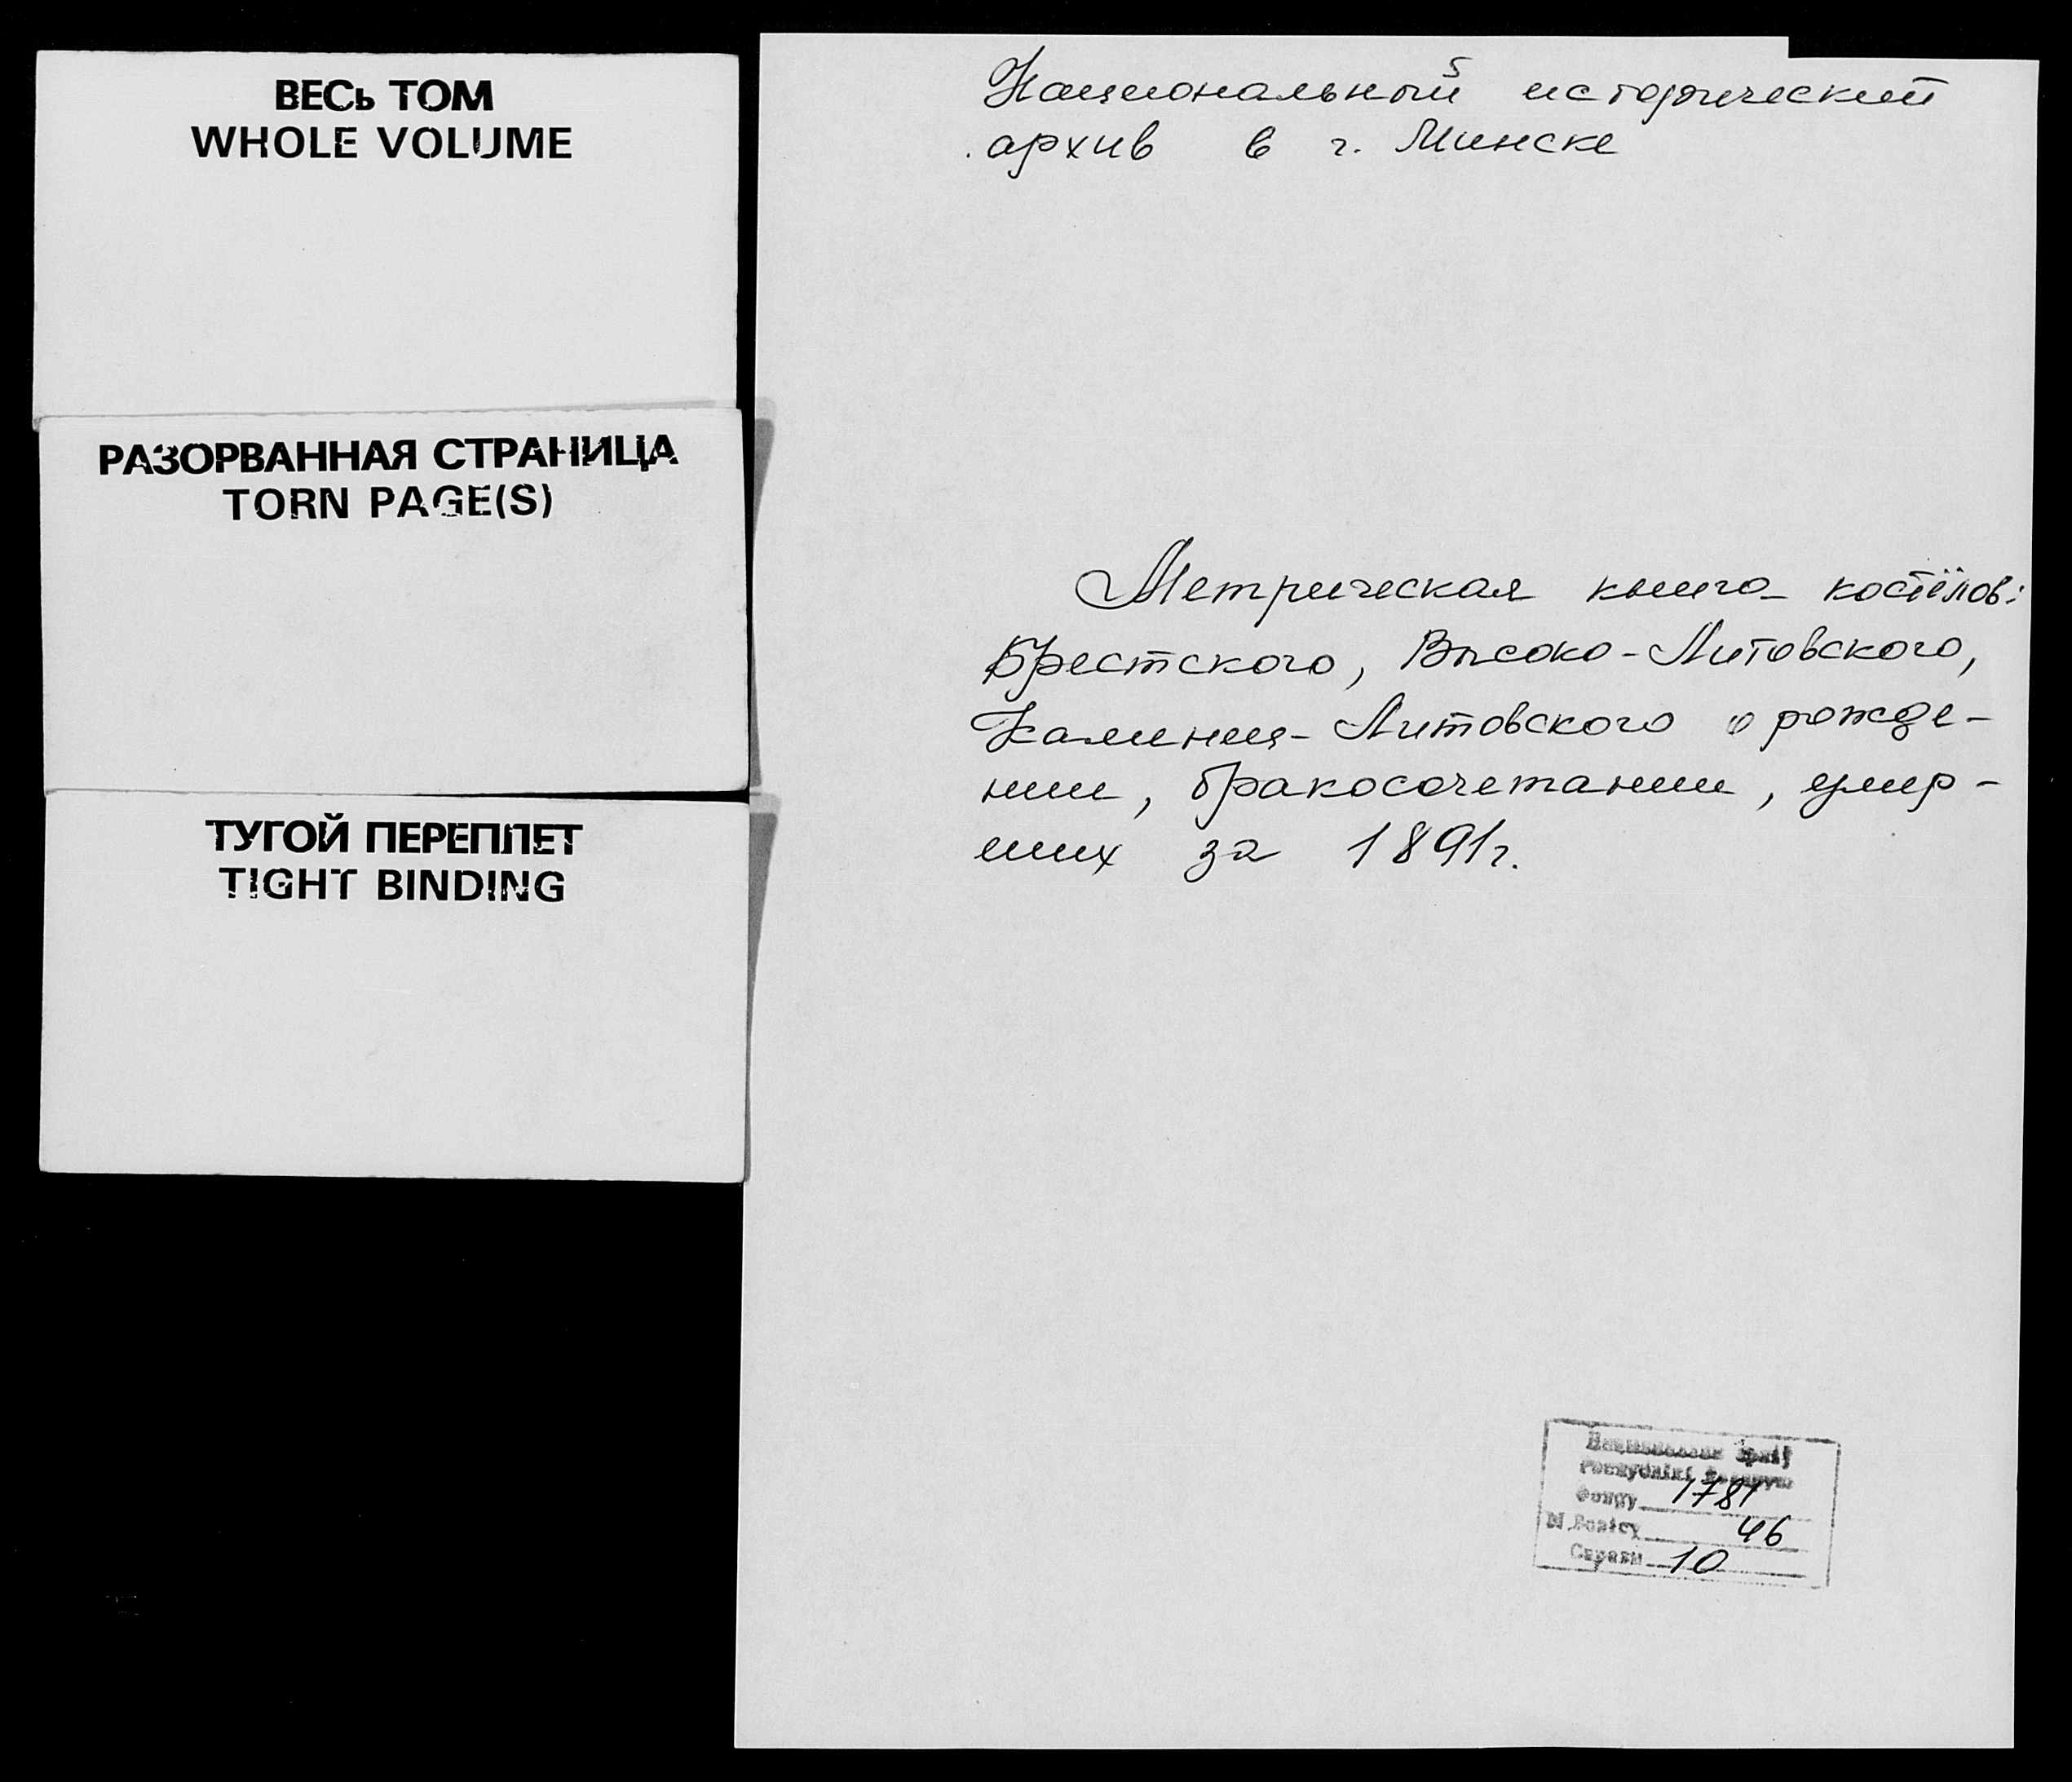 ВЕСЬ ТОМ
WHOLE VOLUME
РАЗОРВАННАЯ СТРАНИЦА
TORN PAGE(S)
ТУГОЙ ПЕРЕПЛЕТ
TIGHT BINDING
Национальный исторический
архив в г. Минске
Метрическая книга костёлов:
Брестского, Высоко-Литовского,
Каменец-Литовского о рожде-
нии, бракосочетании, умер-
ших за 1891г.
Рэспублікі Беларусь
Фонду 1781
46
Справы 10